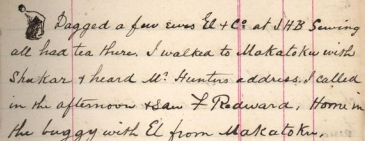 Dagged a few ewes El & Co at JHB Sewing
all had tea there. I walked to Makatoku with
& heard Mr Hunters address. I called
in the afternoon & saw F Redward, Home in
the buggy with El from Makatoku,